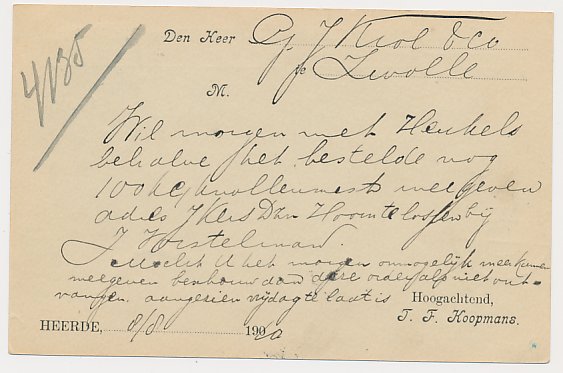 4135
Den Heer G J Krol & Co
te Zwolle
M.
Wil morgen met Henkels
behalve het bestelde nog
100 kg knollenmest meegeven
adres J Kers Dzn Hoorn te lossen bij
J Horstelman.
Mocht U het morgen onmogelijk mee kunnen
meegeven beschouw dan deze order als niet ont-
vangen. aangezien vrijdag te laat is
Hoogachtend,
T. F. Koopmans.
HEERDE, 8/8 1920